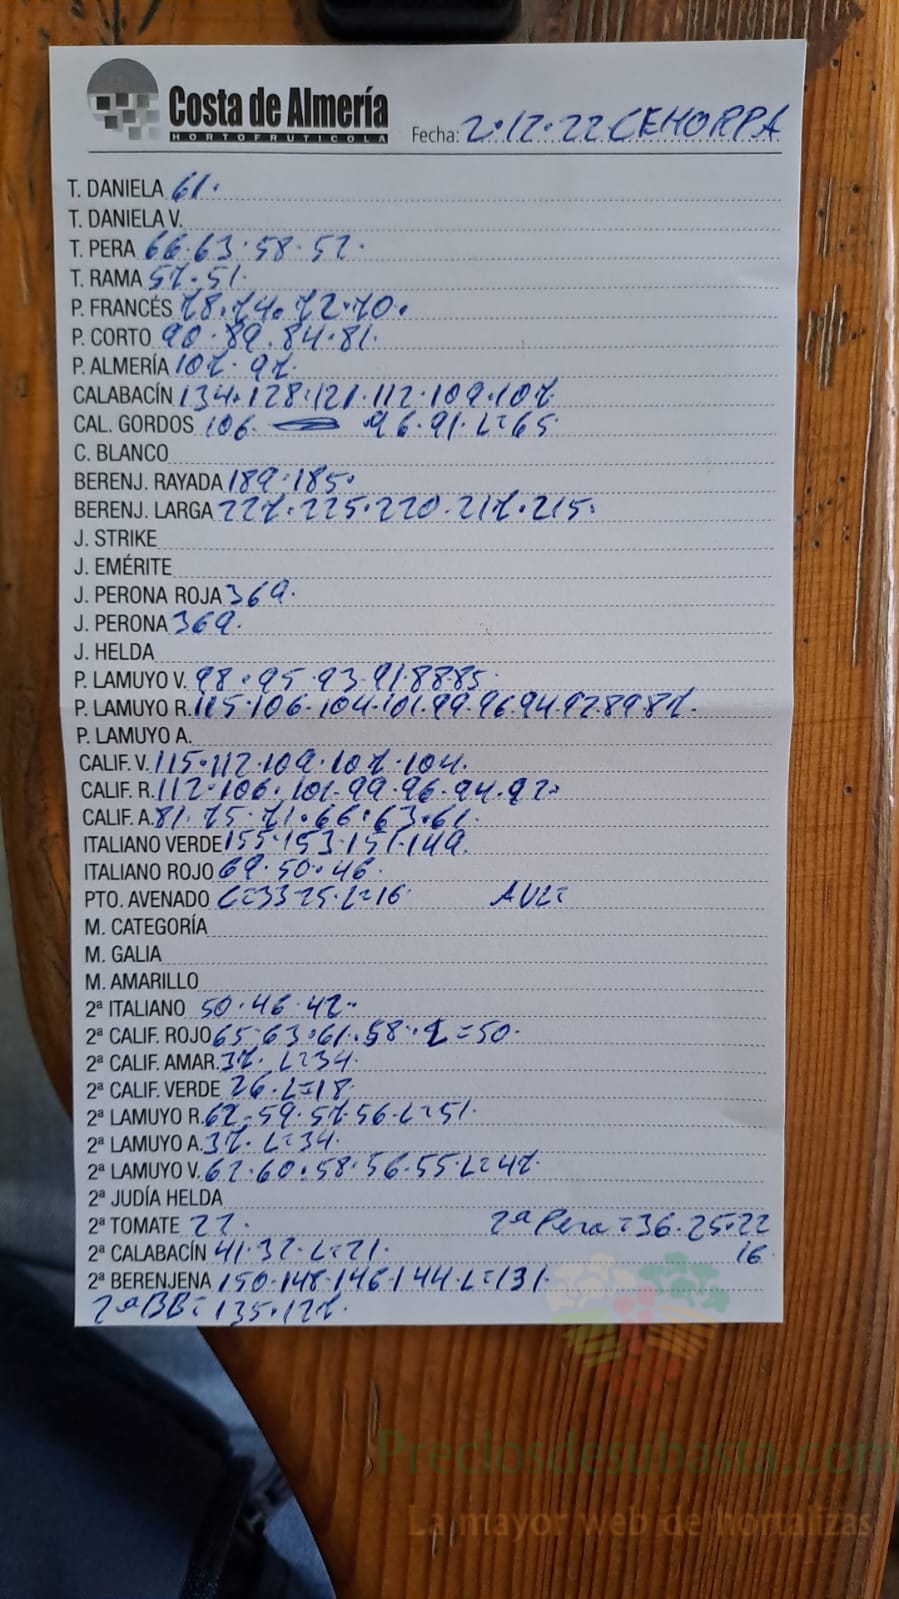 Costa de Almería
HORTOFRUTICOLA
Fecha: 2·12·22 CEHORPA
T. DANIELA 61·
T. DANIELA V.
T. PERA 66·63·58·52·
T. RAMA 57·51·
P. FRANCÉS 78·74·72·70·
P. CORTO 90·89·84·81·
P. ALMERÍA 107·97·
CALABACÍN 134·128·121·112·109·107
CAL. GORDOS 106· 96·91·L=65·
C. BLANCO
BERENJ. RAYADA 189·185·
BERENJ. LARGA 227·225·220·217·215·
J. STRIKE
J. EMÉRITE
J. PERONA ROJA 369·
J. PERONA 369·
J. HELDA
P. LAMUYO V. 98·95·93·91·88·85·
P. LAMUYO R. 115·106·104·101·99·96·94·92·89·87·
P. LAMUYO A.
CALIF. V. 115·112·109·107·104·
CALIF. R. 112·106·101·99·96·94·92·
CALIF. A. 81·75·71·66·63·61·
ITALIANO VERDE 155·153·151·149·
ITALIANO ROJO 69·50·46·
PTO. AVENADO C=33·25·L=16· AVL=
M. CATEGORÍA
M. GALIA
M. AMARILLO
2ª ITALIANO 50·46·42·
2ª CALIF. ROJO 65·63·61·58·L=50·
2ª CALIF. AMAR. 37·L=34·
2ª CALIF. VERDE 26·L=18·
2ª LAMUYO R. 62·59·57·56·L=51·
2ª LAMUYO A. 37·L=34·
2ª LAMUYO V. 62·60·58·56·55·L=47·
2ª JUDÍA HELDA
2ª TOMATE 22· 2ª Pera=36·25·22
16·
2ª CALABACÍN 41·32·L=21·
2ª BERENJENA 150·148·146·144·L=131·
2ªBB=135·127·
Preciosdesubasta.com
La mayor web de hortalizas